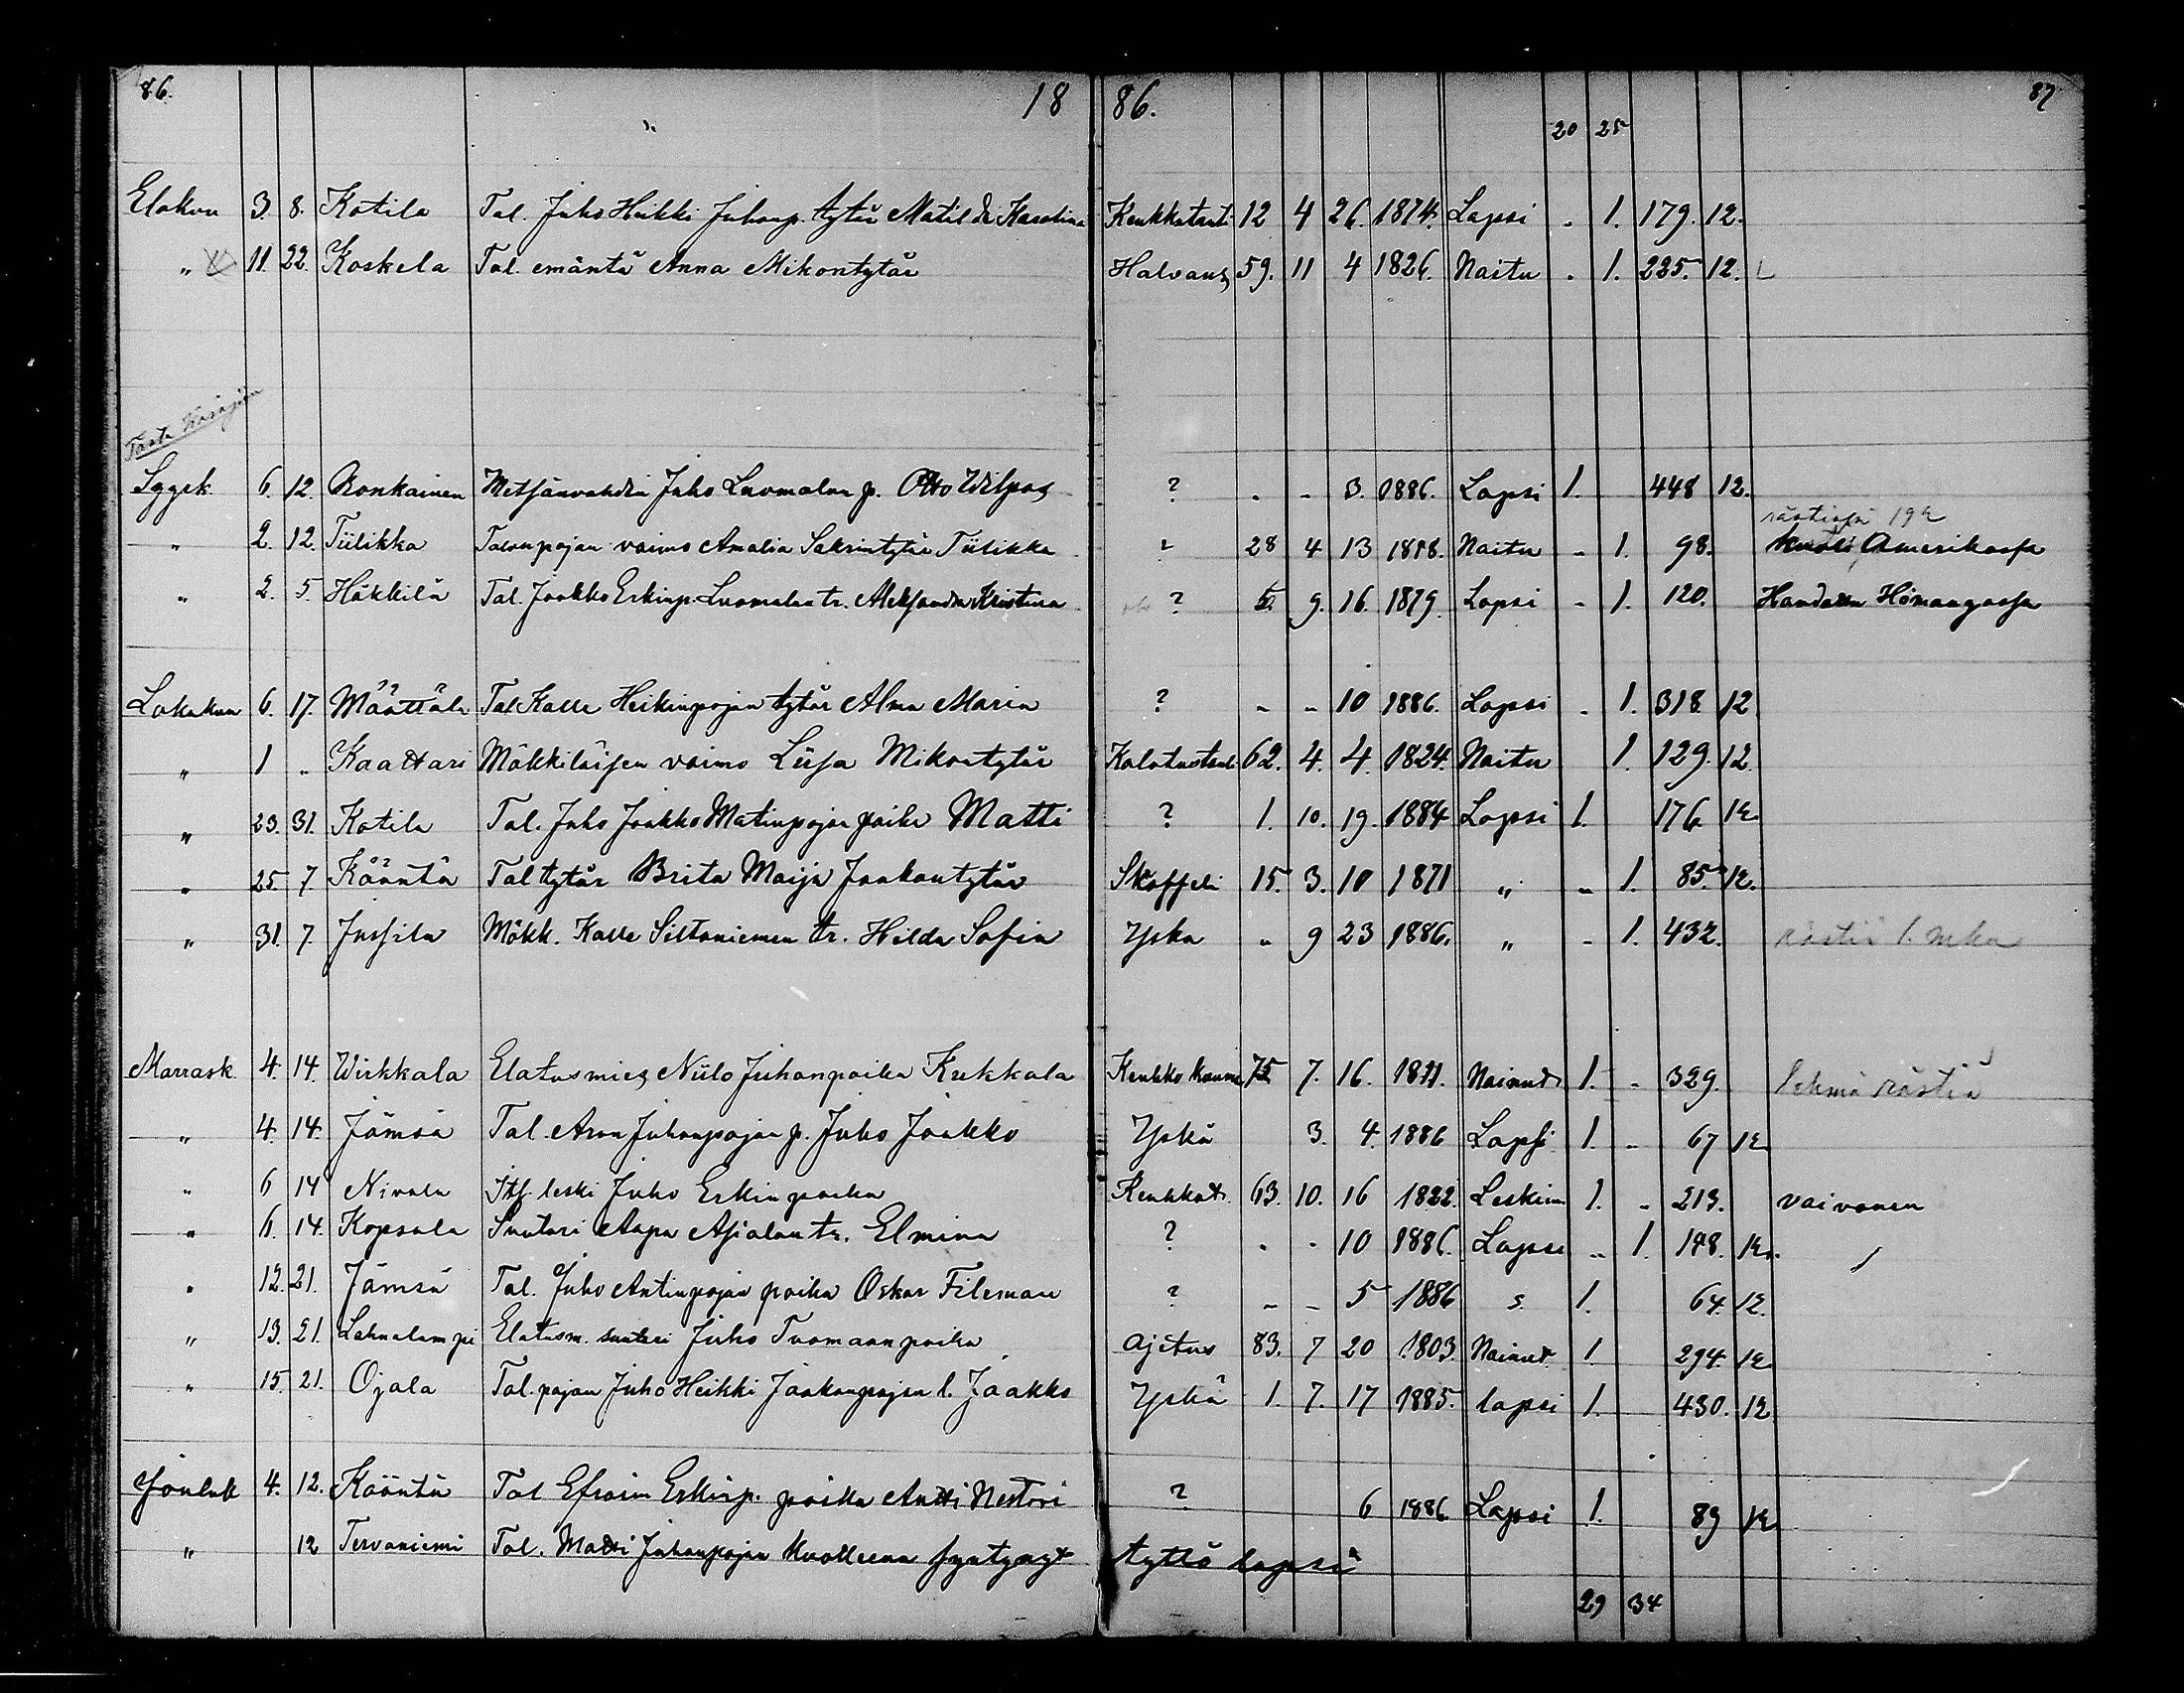 86. 18 86. 87
20 25
Elokuu 3. 8. Kotila Tal. Juho Heikki Juhonp. tytär Matilda Karolina Keuhkotauti 12 4 26. 1874. Lapsi - 1. 179. 12.
" 11. 22. Koskela Tal. emäntä Anna Mikontytär Halvaus 59. 11 4 1826. Naitu - 1. 225. 12.
Syysk. 6. 12. Ronkainen Metsänvahdin Juho Luomalan p. Otto Wilpas ? - - 3. 1886. Lapsi 1. 448 12.
rästissä
" 2. 12. Tiilikka Talonpojan vaimo Amalia Sakrintytär Tiilikka 28 4 13 1858. Naitu - 1. 98. Kuoli Amerikassa
" 2. 5. Häkkilä Tal. Jaakko Erkinp. Luomalan tr. Aleksandra Kristina ? 9. 16. 1879. Lapsi - 1. 120. Haudattu Himangassa
Lokakuu 6. 17. Määttälä Tal. Kalle Heikinpojan tytär Alma Maria ? - - 10 1886. Lapsi - 1. 318. 12
" 1 " Kaattari Mökkiläisen vaimo Liisa Mikontytär 62. 4. 4. 1824. Naitu 1. 129. 12.
" 23. 31. Kotila Tal. Juho Jaakko Matinpojan poika Matti ? 1. 10. 19. 1884 Lapsi 1. 176. 12.
" 25. 7. Kääntä Tal tytär Brita Maija Jaakontytär 15. 3. 10 1871 " - 1. 85. 12.
" 31. 7. Jussila Mökk. Kalle Siltaniemen tr. Hilda Sofia Yskä " 9 23 1886. " - 1. 432. rästiä 1. mka
Marrask. 4. 14. Wirkkala Elatusmies Niilo Juhonpoika Kukkala 75 7. 16. 1811. Nainut 1. - 329. lehmä rästiä
" 4. 14. Jämsä Tal. Aron Juhonpojan p. Juho Jaakko Yskä 3. 4. 1886 Lapsi 1. - 67 12.
" 6 14 Nivala Its. leski Juho Erkinpoika Keuhkot. 63. 10. 16 1822. Leskim 1. - 213. vaivanen
" 6. 14. Kopsala Suutari Aapa Asialan tr. Elmina ? - - 10 1886. Lapsi - 1. 148. 12.
" 12. 21. Jämsä Tal. Juho Antinpojan poika Oskar Fileman ? - - 5 1886 s. 1. 64. 12.
" 13. 21. Lahnalampi Elatusm. suutari Juho Tuomaanpoika Ajetus 83. 7 20 1803. Nainut 1 294. 12.
" 15. 21. Ojala Tal. pojan Juho Heikki Jaakonpojan l. Jaakko Yskä 1. 7. 17 1885. lapsi 1. 430. 12
Jouluk 4. 12. Kääntä Tal Efraim Erkinp. poika Antti Nestori ? 6 1886. Lapsi 1. 89 12
" 12 Tervaniemi Tal. Matti Juhonpojan kuolleena syntynyt tyttö lapsi
29 34